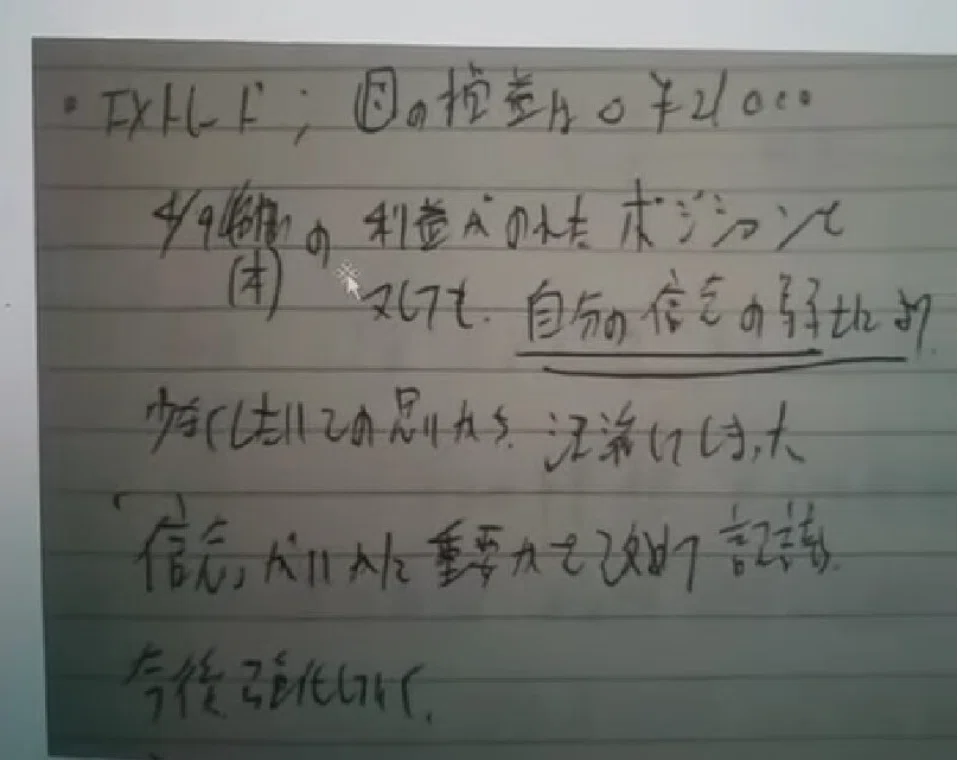 ・FXトレード; の損益は ¥21000
4/9 の 利益がのれたポジション
(木) しても、自分の信念の弱さにより
少なくしたいとの思いから、決済してしまった
「信念」がいかに重要かを改めて認識。
今後強化していく。